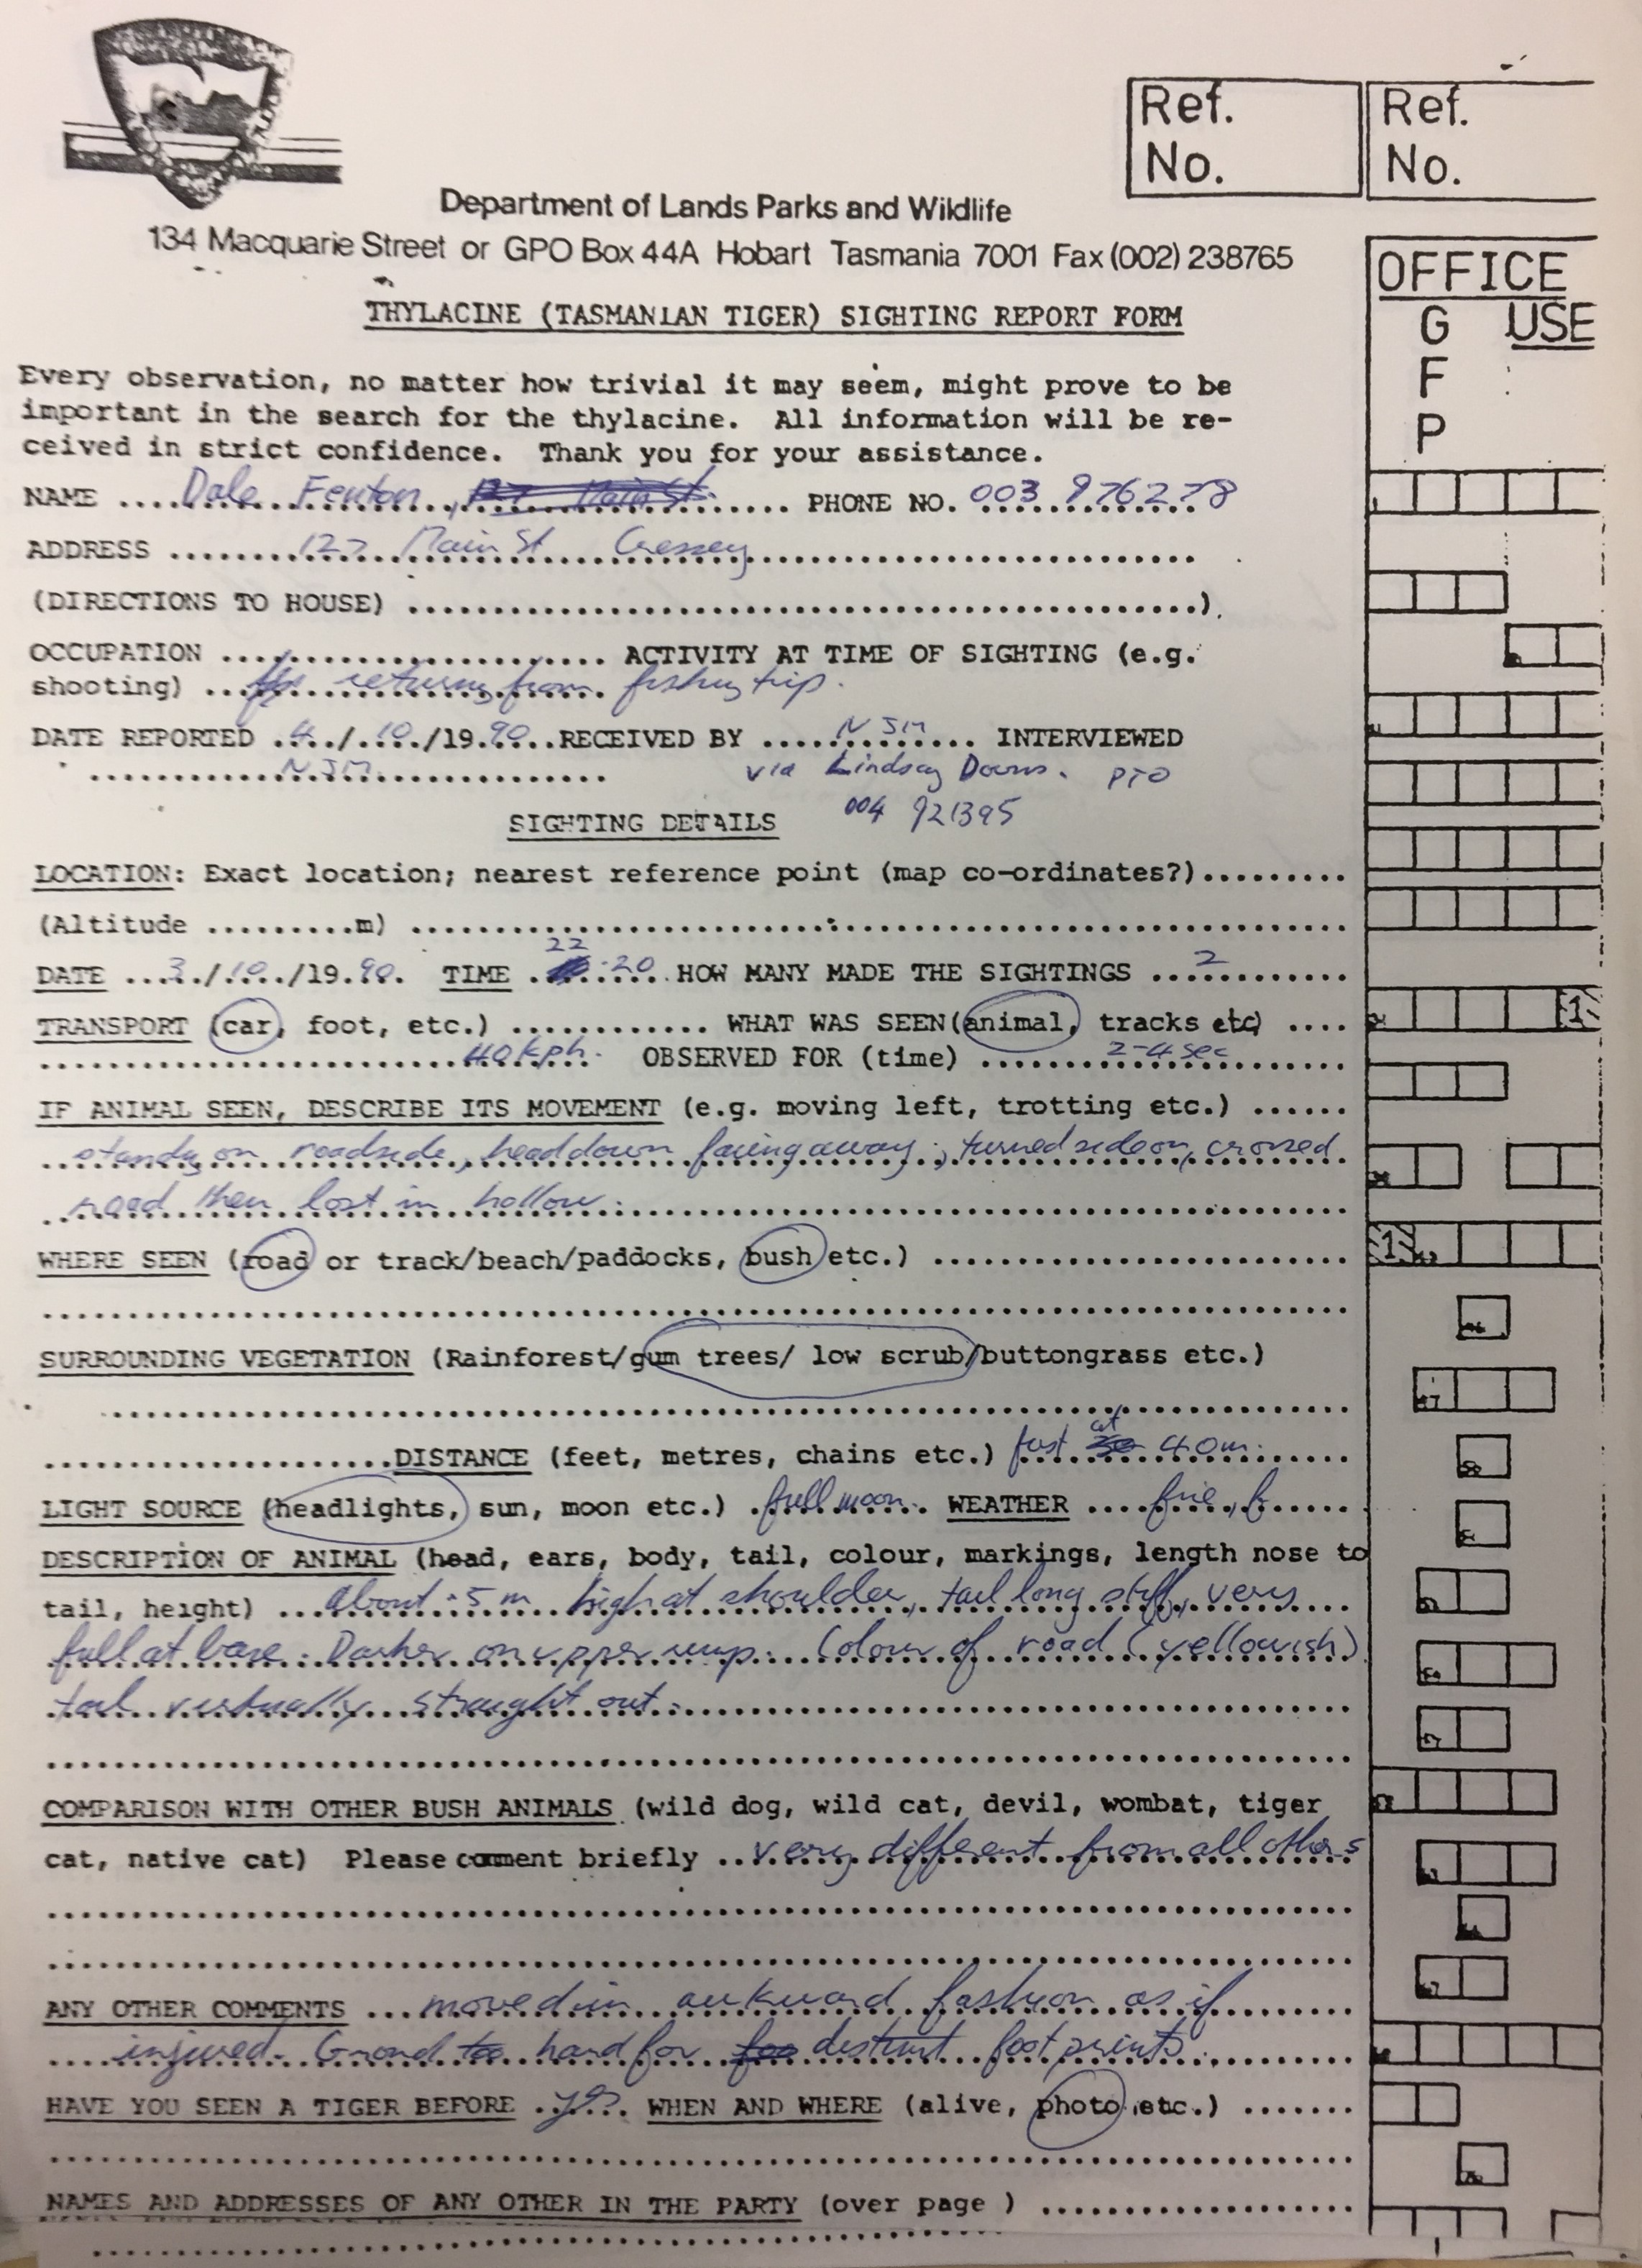 Ref.
No.
Ref.
No.
Department of Lands Parks and Wildlife
134 Macquarie Street or GPO Box 44A Hobart Tasmania 7001 Fax (002) 238765
THYLACINE (TASMANIAN TIGER) SIGHTING REPORT FORM
OFFICE
USE
G
F
P
Every observation, no matter how trivial it may seem, might prove to be
important in the search for the thylacine. All information will be re-
ceived in strict confidence. Thank you for your assistance.
NAME .... Dale Fenton, ........ PHONE NO. 003 976278
ADDRESS ........ 127 Main St Cressey ........
(DIRECTIONS TO HOUSE) ........).
OCCUPATION ........ ACTIVITY AT TIME OF SIGHTING (e.g.
shooting) ... returning from fishing trip.
DATE REPORTED .4../.10../19.90...RECEIVED BY ..... NJM ..... INTERVIEWED
..... NJM ..... via Lindsay Downs. PTO
004 921395
SIGHTING DETAILS
LOCATION: Exact location; nearest reference point (map co-ordinates?).........
(Altitude .........m) ........
DATE ...3./10./19.90. TIME 22.20 HOW MANY MADE THE SIGHTINGS ...2...
TRANSPORT (car, foot, etc.) ............ WHAT WAS SEEN(animal, tracks etc) ....
........ 40 kph. OBSERVED FOR (time) ..... 2-4 sec .....
IF ANIMAL SEEN, DESCRIBE ITS MOVEMENT (e.g. moving left, trotting etc.) ......
standing on roadside, head down facing away; turned side on, crossed
road then lost in hollow.
WHERE SEEN (road or track/beach/paddocks, bush etc.) ........
SURROUNDING VEGETATION (Rainforest/gum trees/ low scrub/buttongrass etc.)
........DISTANCE (feet, metres, chains etc.) first at 40m.
LIGHT SOURCE (headlights, sun, moon etc.) .full moon.. WEATHER .... fine,
DESCRIPTION OF ANIMAL (head, ears, body, tail, colour, markings, length nose to
tail, height) ... about .5 m high at shoulder, tail long stiff, very
full at base. Darker on upper rump. Colour of road (yellowish)
tail virtually straight out.
COMPARISON WITH OTHER BUSH ANIMALS (wild dog, wild cat, devil, wombat, tiger
cat, native cat) Please comment briefly ..very different from all others
ANY OTHER COMMENTS ... moved in awkward fashion as if
injured. Ground too hard for foo distinct footprints.
HAVE YOU SEEN A TIGER BEFORE .yes. WHEN AND WHERE (alive, photo etc.) .......
NAMES AND ADDRESSES OF ANY OTHER IN THE PARTY (over page ) ........